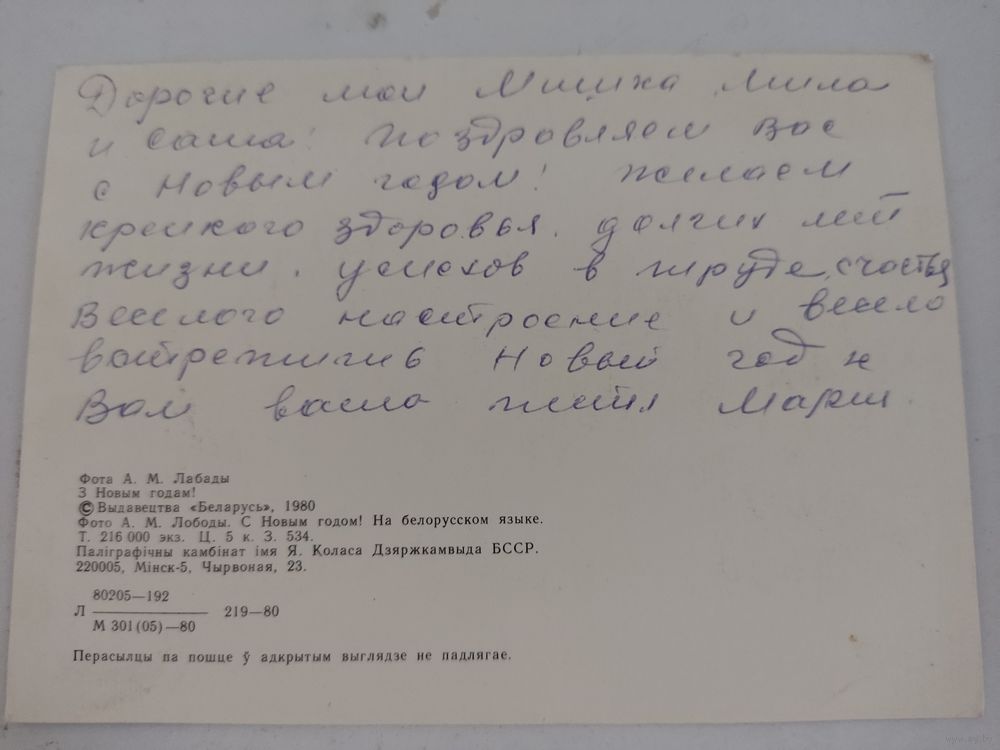 Дорогие мои Мишка, Мила
и Саша! Поздровляем Вас
с Новым годом! желаем
крепкого здоровья, долгих лет
жизни, успехов в труде, счастья
Веселого настроение и весело
Новый год и
Вам ваша тётя
Фота А. М. Лабады
З Новым годам!
© Выдавецтва «Беларусь», 1980
Фото А. М. Лободы. С Новым годом! На белорусском языке.
Т. 216 000 экз. Ц. 5 к. З. 534.
Паліграфічны камбінат імя Я. Коласа Дзяржкамвыда БССР.
220005, Мінск-5, Чырвоная, 23.
80205—192
Л 219—80
М 301(05)—80
Перасылцы па пошце ў адкрытым выглядзе не падлягае.